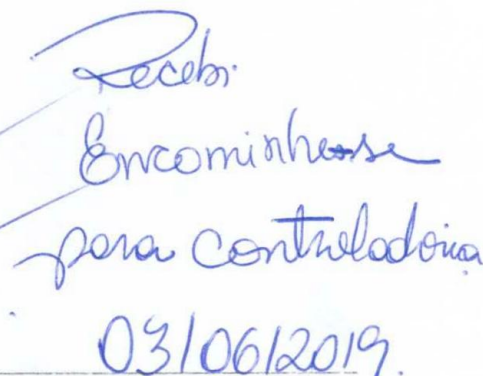 Recebi
Encaminhe-se
para Controladoria
03/06/2019.